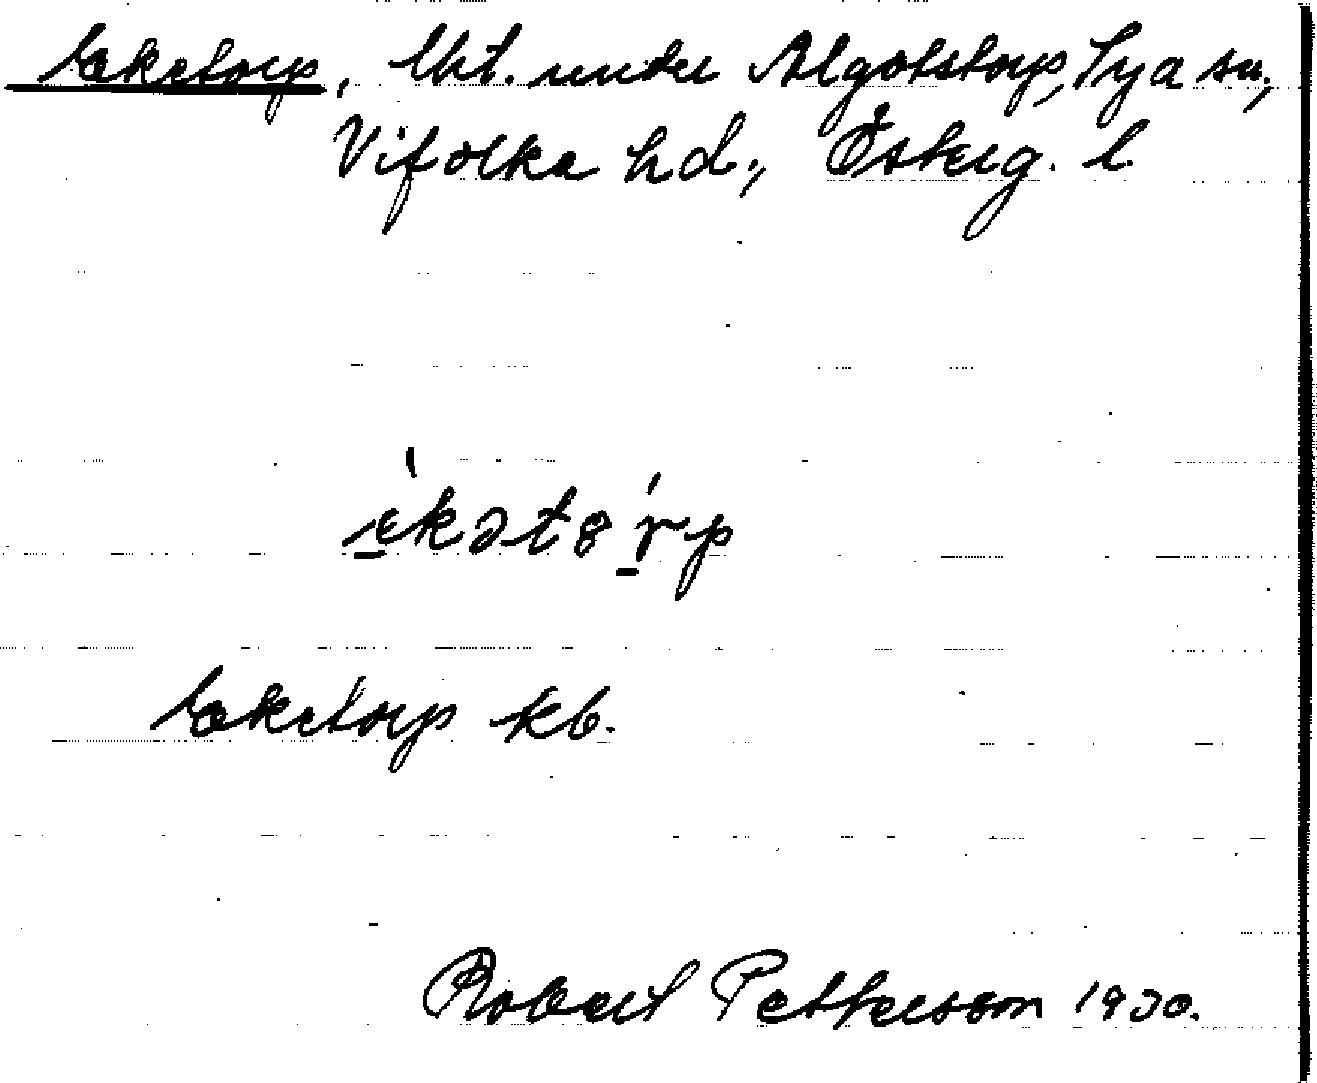 Eketorp, lht. under Algotstorp, Sya sn.,
Vifolka hd., Österg. l.
Eketorp kb.
Robert Pettersson 1930.